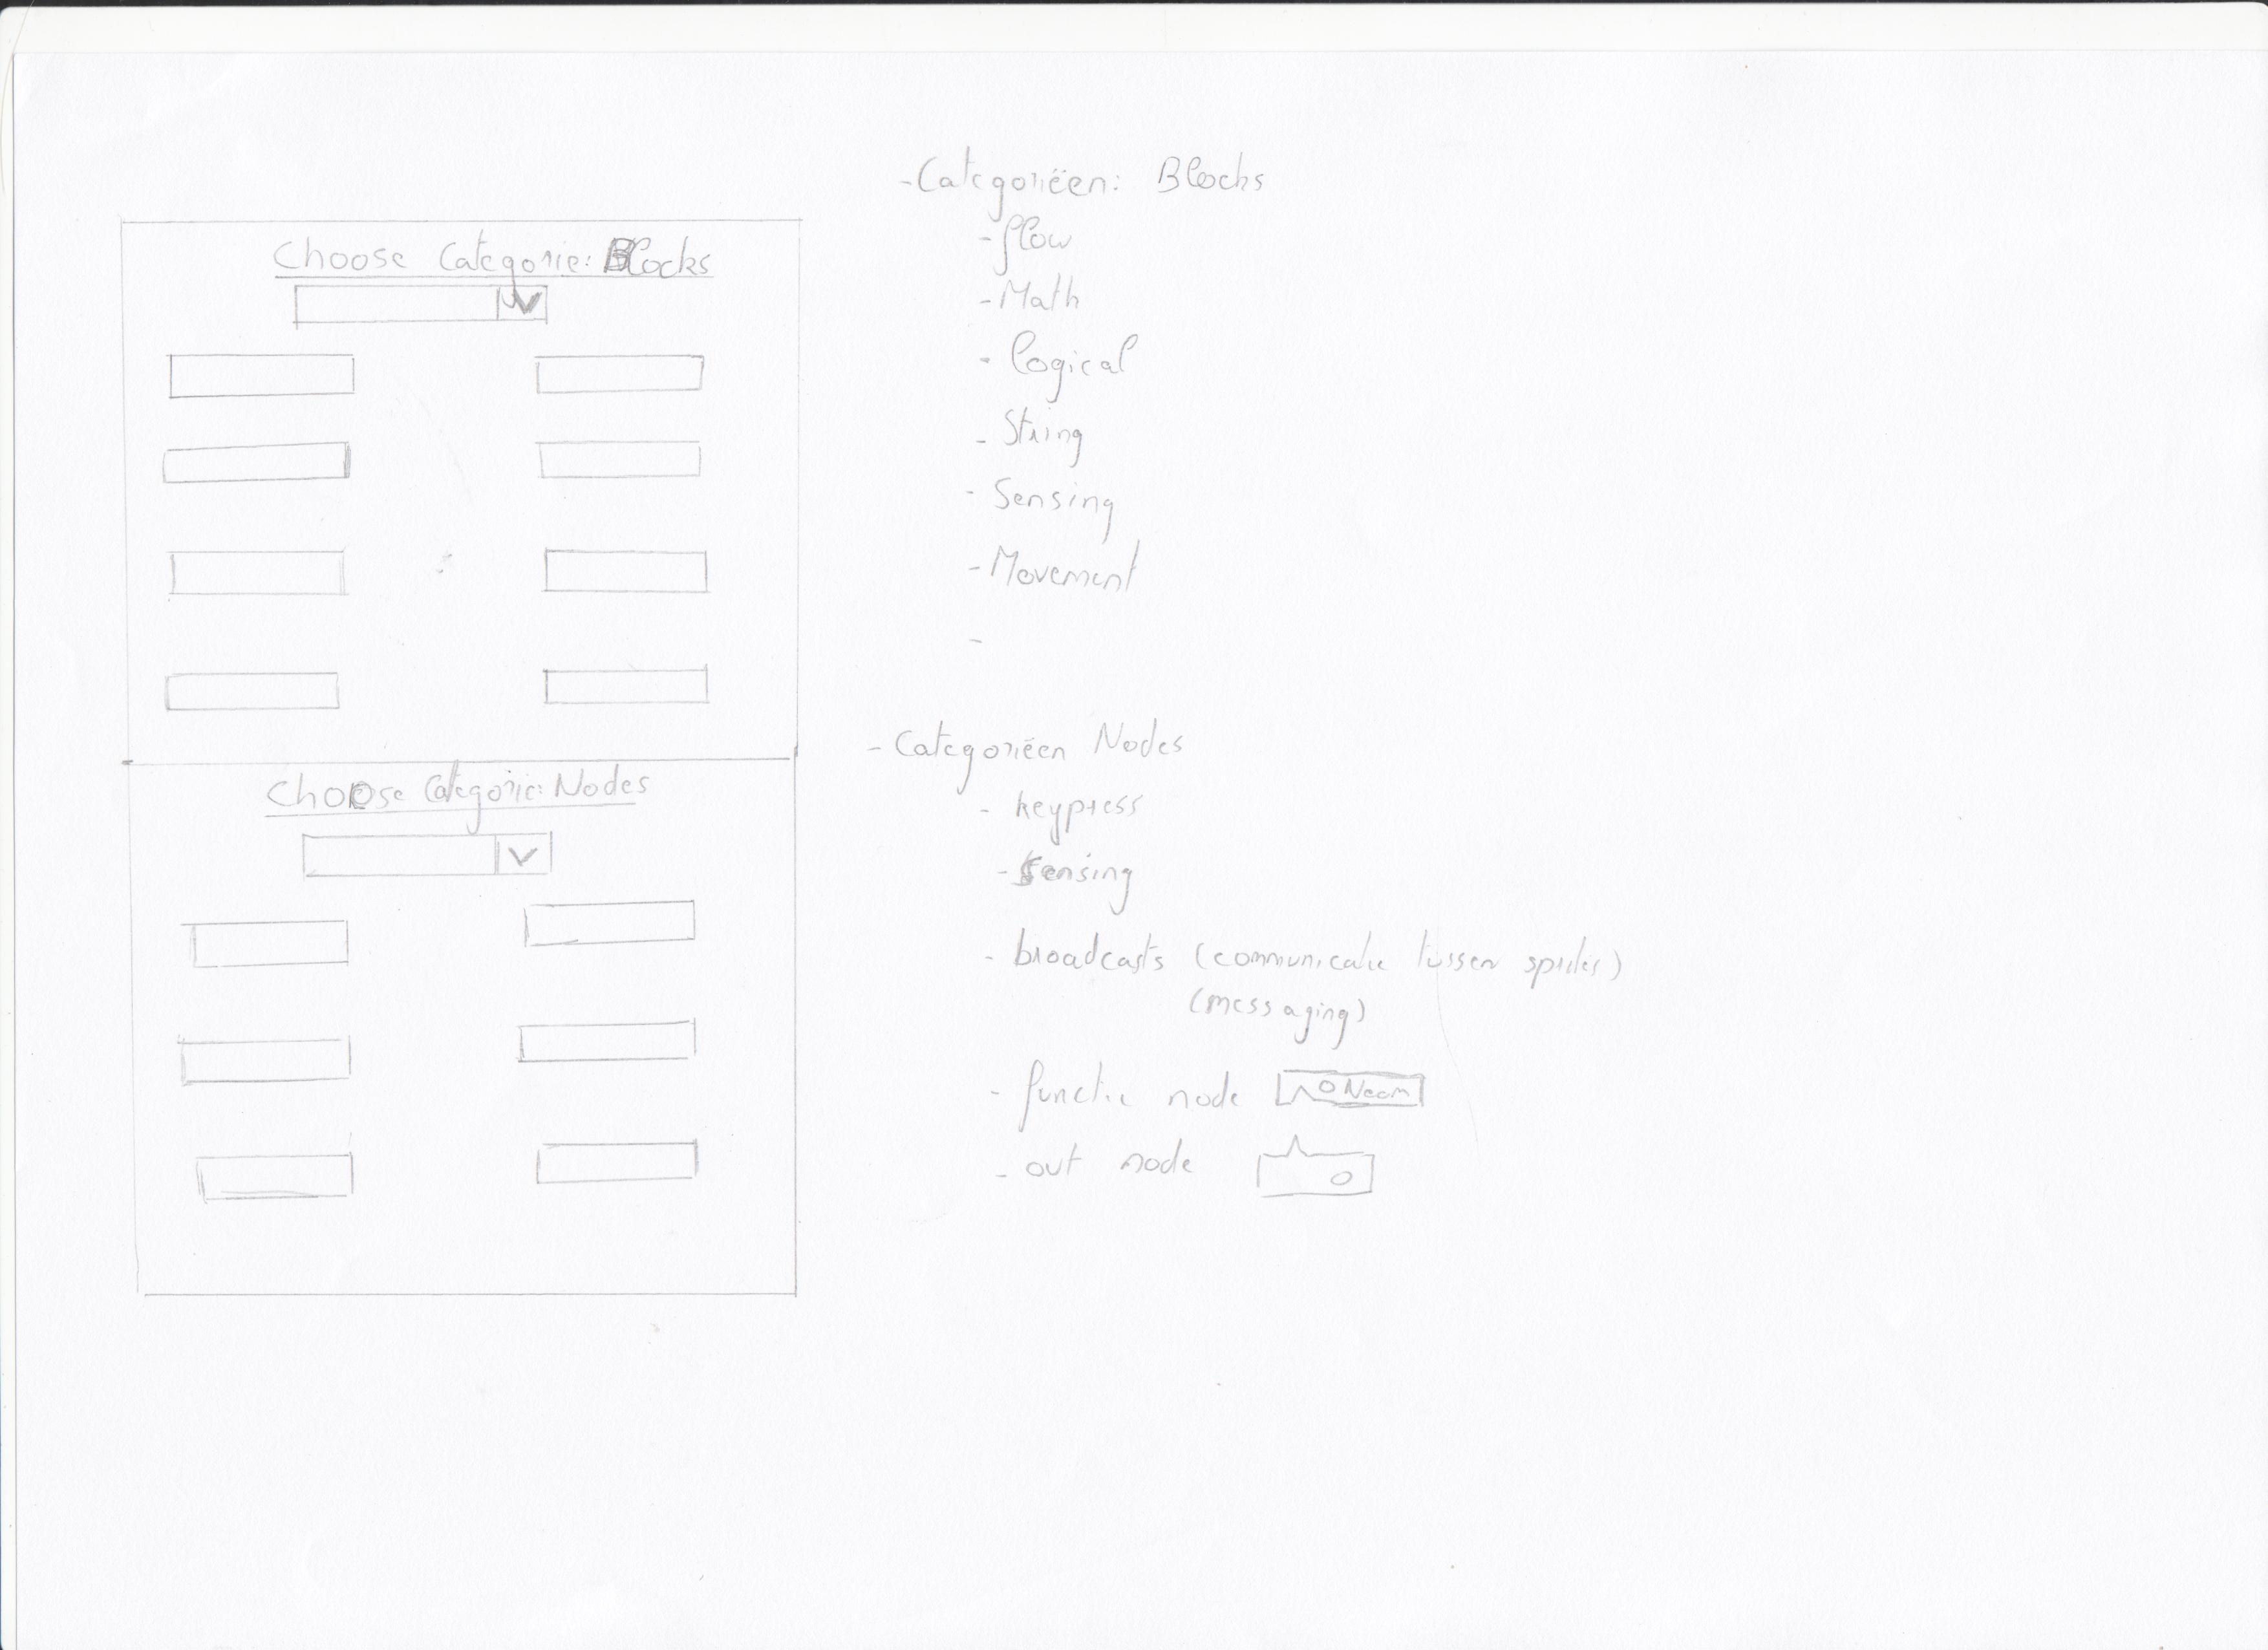 Choose Categorie: Blocks
Choose Categorie: Nodes
- Categorieën: Blocks
- flow
- Math
- Logical
- String
- Sensing
- Movement
-
- Categorieën Nodes
- keypress
- Sensing
- broadcasts (communicatie tussen sprites)
(messaging)
- functie node Naam
- out node